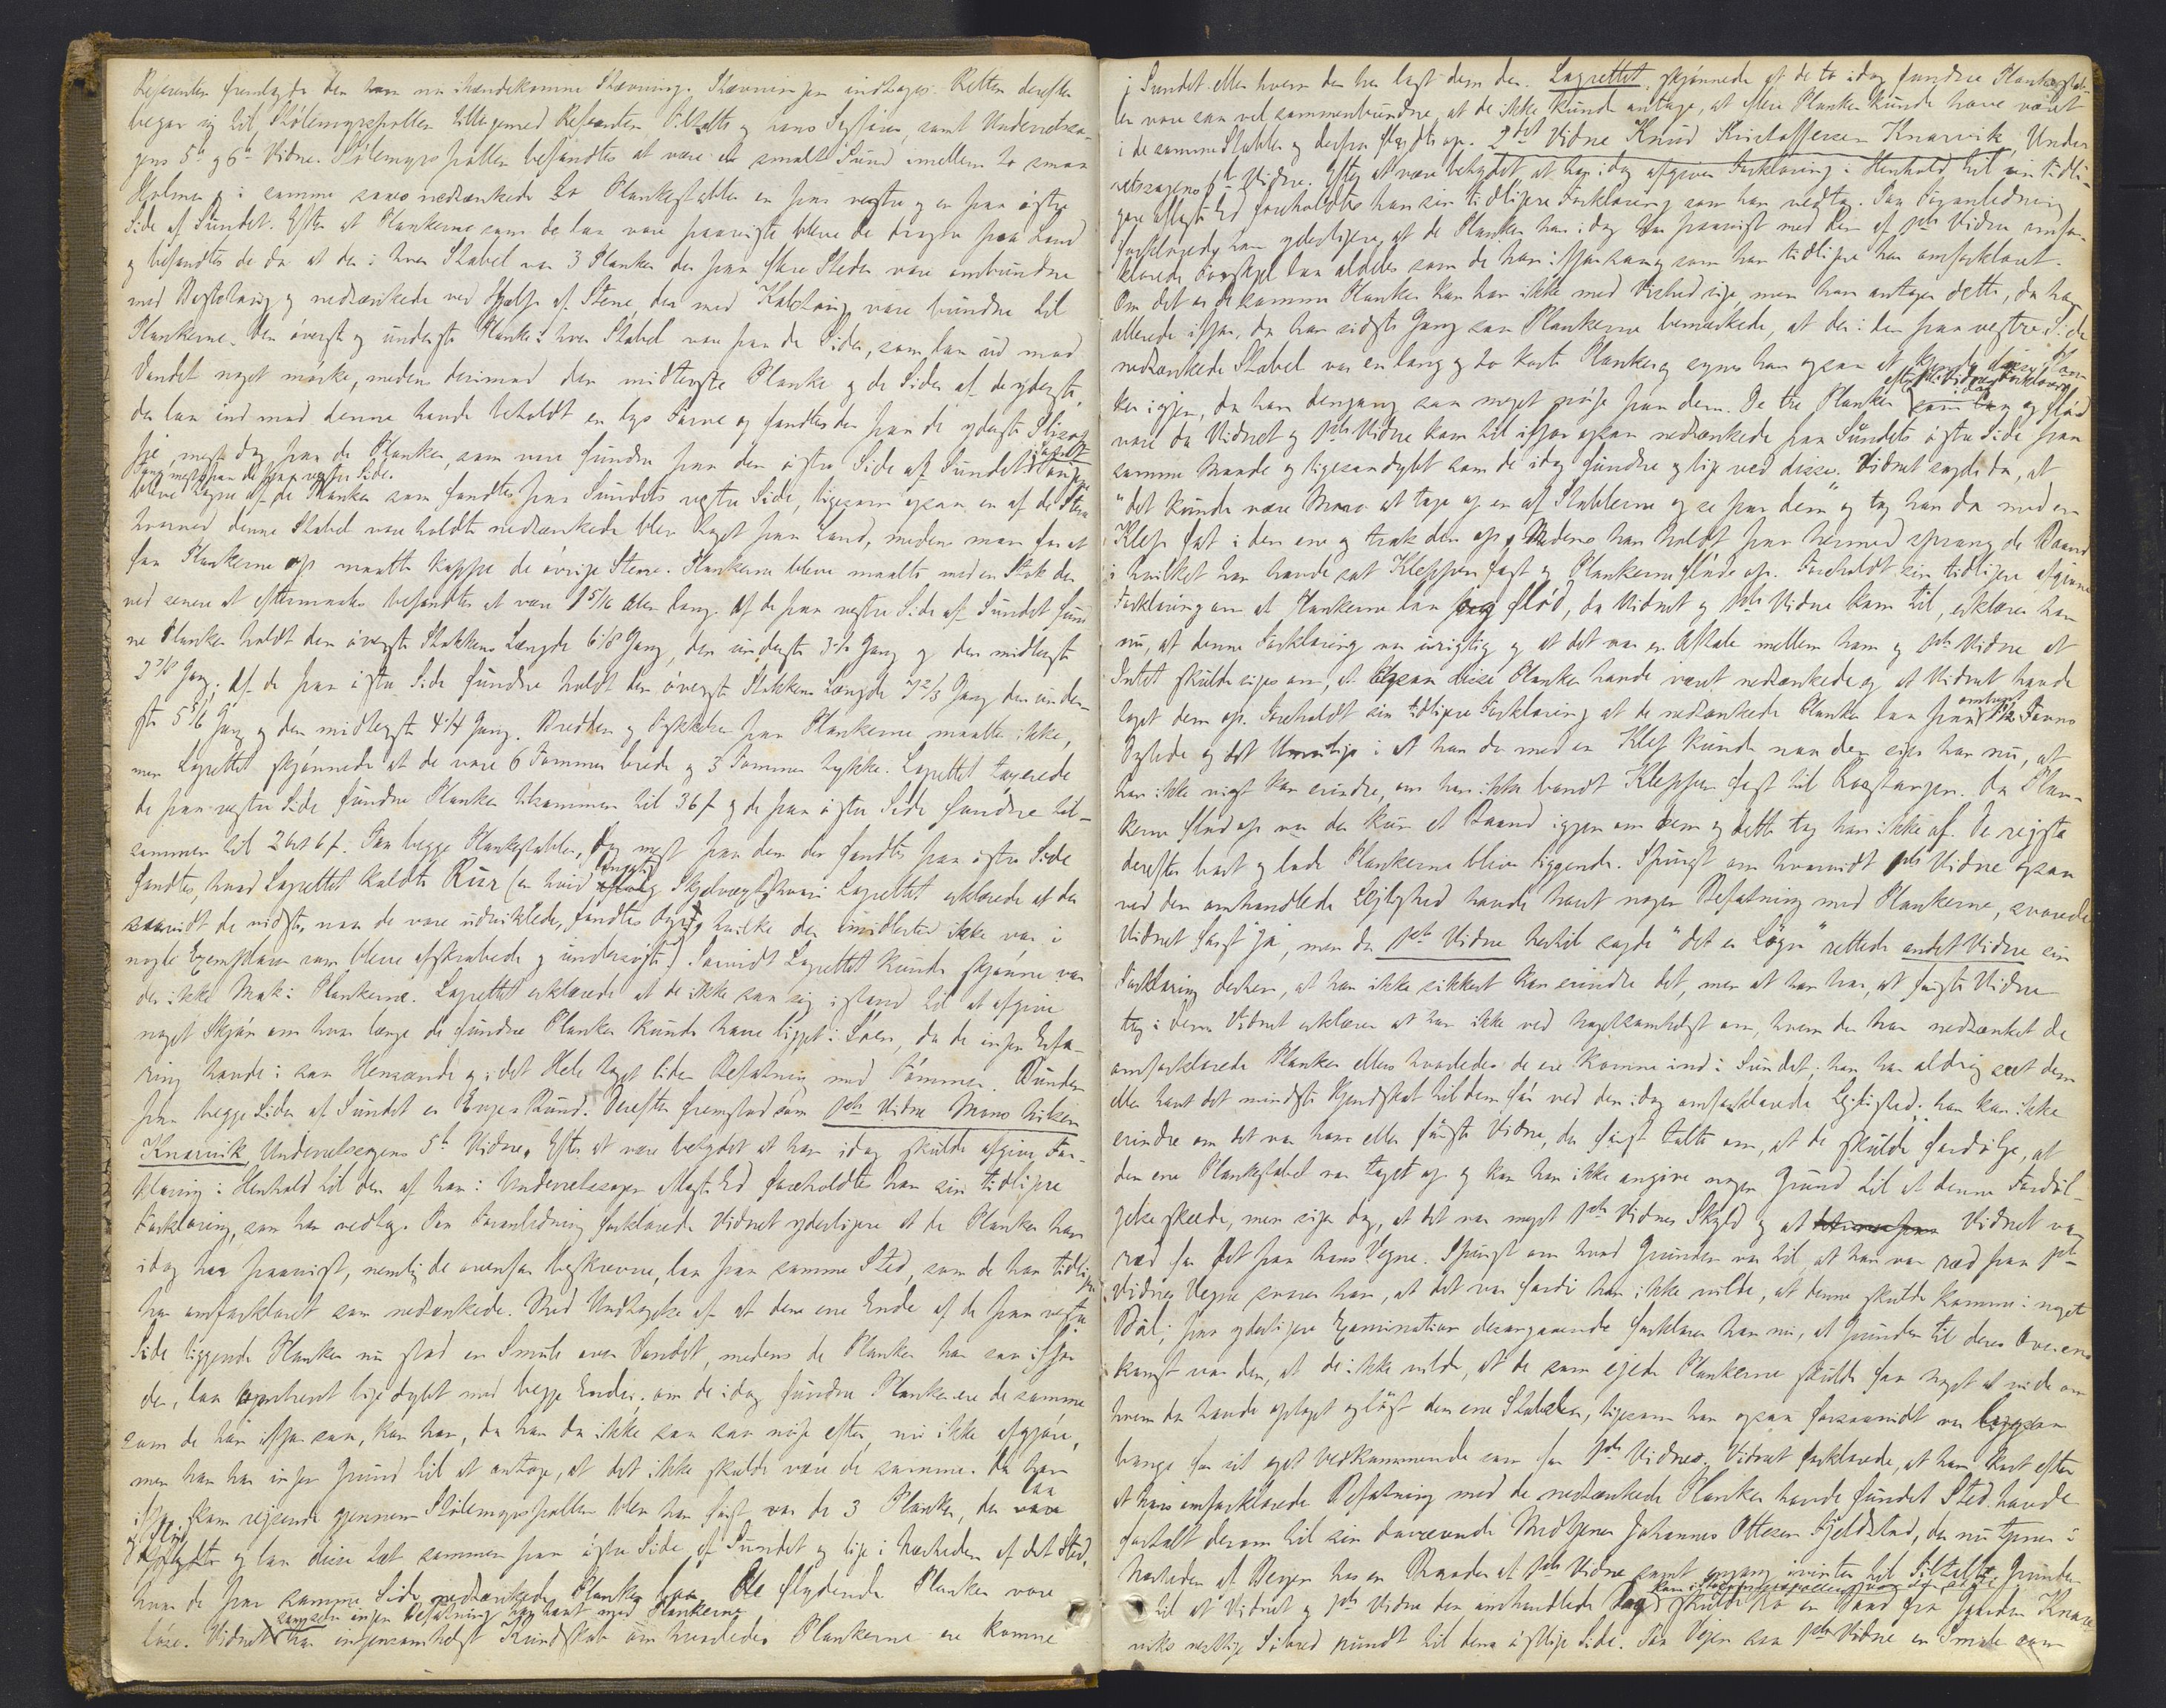 Referenten fremlagde den ham nu ihændekomne Stævning. Stævningen indtages. Retten derefter
begav sig til Stølemyrspollen tilligemed Referenten, Tiltalte og hans Sagfører, samt Underretssa-
gens 5te og 6te Vidne. Stølemyrspollen befandtes at være et smalt Sund imellem to smaa
Holmer og i samme saaes nedsænkede to Plankestabler en paa vestre og en paa østre
Side af Sundet. Efter at Plankerne som de laa vare paaviste bleve de dragne paa Land
og befandtes de da at der i hver Stabel var 3 Planker der paa flere Steder vare ombundne
med og nedsænkede ved Hjælp af Stene, der med Kabeltaug vare bundne til
Plankerne. Den øverste og underste Planke i hver Stabel var paa de Sider, som laa ud mod
Vandet noget mørke, medens derimod den midterste Planke og de Sider af de yderste,
der laa ind mod denne havde beholdt en lys Farve og fandtes der paa de yderste Slirer
dog paa de Planker, som vare fundne paa den østre Side af Sundet
dog mest paa de paa vestre Side.
bleve tagne af de Planker som fandtes paa Sundets vestre Side, ligesom ogsaa en af de Stene
hvormed denne Stabel var holdt nedsænkede blev taget paa Land, medens man for at
faa Plankerne op maatte kappe de øvrige Stene. Plankerne bleve maalte med en Stok der
ved senere at eftermaales befandtes at være 1 5/16 Alen lang. Af de paa vestre Side af Sundet fund-
ne Planker holdt den øverste Stokkens Længde 6 1/8 Gang, den underste 3 1/2 Gang og den midterste
3 7/8 Gang; Af de paa østre Side fundne holdt den øverste Stokkens Længde 3 2/3 Gang den under-
ste 5 5/6 Gang og den midterste 4 1/4 Gang. Bredden og Tykkelsen paa Plankerne maaltes ikke,
men Lagrettet skjønnede at de vare 6 Tommer brede og 3 Tommer tykke. Lagrettet taxerede
de paa vestre Side fundne Planker tilsammen til 36 f og de paa østre Side fundne til-
sammen til 2 ort 6 f. Paa begge Plankestabler, dog mest paa den der fandtes paa østre Side
fandtes, hvad Lagrettet kaldte Rur (en hvid Skjælvæxt, hvori Lagrettet erklærede at der
saavidt de vidste, naar de vare udviklede, fandtes hvilke der imidlertid ikke var i
nogle Exemplarer som bleve afskrabede og undersøgte.) Saavidt Lagrettet kunde skjønne var
der ikke Mak i Plankerne. Lagrettet erklærede at de ikke saa sig istand til at afgive
noget Skjøn om hvor længe de fundne Planker kunde have ligget i Søen, da de ingen Erfa-
ring havde i saa Henseende og i det Hele taget liden Befatning med Tømmer. Bunden
paa begge Sider af Sundet er Bund. Derefter fremstod som 1ste Vidne Mons Nilsen
Knarvik, Underretssagens 5te Vidne. Efter at være betydet at han idag skulde afgive For-
klaring i Henhold til den af ham i Underretssagen aflagte Ed foreholdtes ham sin tidligere
Forklaring, som han vedtog. Paa Foranledning forklarede Vidnet yderligere at de Planker han
idag har paavist, nemlig de ovenfor beskrevne, laa paa samme Sted, som de han tidligere
har omforklaret som nedsænkede. Med Undtagelse af at den ene Ende af de paa vestre
Side liggende Planker nu stod en Smule over Vandet, medens de Planker han saa ifjor
der, laa lige dybt med begge Ender; om de idag fundne Planker ere de samme
som de han ifjor saa, kan han, da han da ikke saa saa nøje efter, nu ikke afgjøre,
men han har ingen Grund til at antage, at det ikke skulde være de samme. Da han
ifjor kom rejsende gjennem Stølemyrspollen blev han først var de 3 Planker, der laa
og fløt og laa disse tæt sammen paa østre Side af Sundet og lige i Nærheden af det Sted,
hvor de paa samme Side nedsænkede Planker laa. De flydende Planker vare
løse. Vidnet som ogsaa ingen Befatning har havt med Plankerne
har ingensomhelst Kundskab om hvorledes Plankerne ere komne
i Sundet eller hvem der har lagt dem der. Lagrettet skjønnede at de to idag fundne Plankestab-
ler vare saa vel sammenbundne, at de ikke kunde antage, at flere Planker kunde have været
i de samme Stabler og derfra flydt op. 2det Vidne Knud Kristoffersen Knarvik, Under
retssagens 6te Vidne. Efter at være betydet at han idag afgiver Forklaring i Henhold til sin tidli-
gere aflagte Ed foreholdtes ham sin tidligere Forklaring som han vedtog. Paa Foranledning
forklarede han yderligere, at de Planker han idag har paavist med den af 1ste Vidne omfor-
klarede Forskjel laa aldeles som de han ifjor saa og som han tidligere har omforklaret.
Om det er de samme Planker kan han ikke med Vished sige, men han antager dette, da han
allerede ifjor, da han sidste Gang saa Plankerne bemærkede, at der i den paa vestre Side
nedsænkede Stabel var en lang og to korte Planker og synes han ogsaa at kjende disse Plan-
ker igjen, da han dengang saa meget nøje paa dem. De tre Planker efter 1ste Vidnes Forklaring laa og flød
vare da Vidnet og 1ste Vidne kom til ifjor ogsaa nedsænkede paa Sundets østre Side paa
samme Maade og ligesaa dybt som de idag fundne og lige ved disse. Vidnet sagde da, at
"det kunde være Moro at tage op en af Stablerne og se paa dem" og tog han da med en
Klep fat i den ene og trak den op. Medens han holdt paa hermed sprang det Baand
i hvilket han havde sat Kleppen fast og Plankerne fløde op. Foreholdt sin tidligere afgivne
Forklaring om at Plankerne laa og flød, da Vidnet og 1ste Vidne kom til, erklærer han
nu, at denne Forklaring var urigtig og at det var en Aftale mellem ham og 1ste Vidne at
Intet skulde siges om, at ogsaa disse Planker havde været nedsænkede og at Vidnet havde
taget dem op. Foreholdt sin tidligere Forklaring at de nedsænkede Planker laa paa omtrent Favne
Dybde og det Umulige i at han da med en Klep kunde naa dem siger han nu, at
han ikke vist kan erindre, om han ikke bandt Kleppen fast til Bagstangen. Da Plan-
kerne flød op var der kun et Baand igjen om dem og dette tog han ikke af. De rejste
derefter bort og lode Plankerne blive liggende. Spurgt om hvorvidt 1ste Vidne ogsaa
ved den omhandlede Lejlighed havde havt nogen Befatning med Plankerne, svarede
Vidnet først "ja", men da 1ste Vidne hertil sagde "det er Løgn" rettede andet Vidne sin
Forklaring derhen, at han ikke sikkert kan erindre det, men at han tror, at første Vidne
tog i dem. Vidnet erklærer at han ikke ved nogetsomhelst om, hvem der har nedsænket de
omforklarede Planker eller hvorledes de ere komne ind i Sundet, han har aldrig seet dem
eller havt det mindste Kjendskab til dem før ved den idag omforklarede Lejlighed; han kan ikke
erindre om det var ham eller første Vidne, der først talte om, at de skulde fordølge, at
den ene Plankestabel var taget op og kan han ikke angive nogen Grund til at denne Fordøl-
gelse skede, men siger dog, at det var meget 1ste Vidnes Skyld og at Vidnet var
ræd for det paa hans Vegne. Spurgt om hvad Grunden var til at han var ræd paa 1ste
Vidnes Vegne svarer han, at det var fordi han ikke vilde, at denne skulde komme i noget
Bøl; paa yderligere Examination desangaaende forklarer han nu, at Grunden til deres Overens-
komst var den, at de ikke vilde, at de som ejede Plankerne skulde faa noget at vide om
hvem der havde optaget og løst den ene Stabel, ligesom han ogsaa forsaavidt var ligesaa
bange for sit eget Vedkommende som for 1ste Vidnes. Vidnet forklarede, at han kort efter
at hans omforklarede Befatning med de nedsænkede Planker havde fundet Sted havde
fortalt derom til sin daværende Medtjener Johannes Ottesen Fjeldstad, der nu tjener i
Nærheden af Bergen hos en Broder af 1ste Vidne samt engang ivinter til Tiltalte. Grunden
til at Vidnet og 1ste Vidne den omhandlede Dag kom i Stølemyrspollen var den at de skulde ro en Baad fra Gaarden Knar-
viks vestlige Søbred rundt til dens østlige Side. Paa Vejen saa 1ste Vidne en Smule